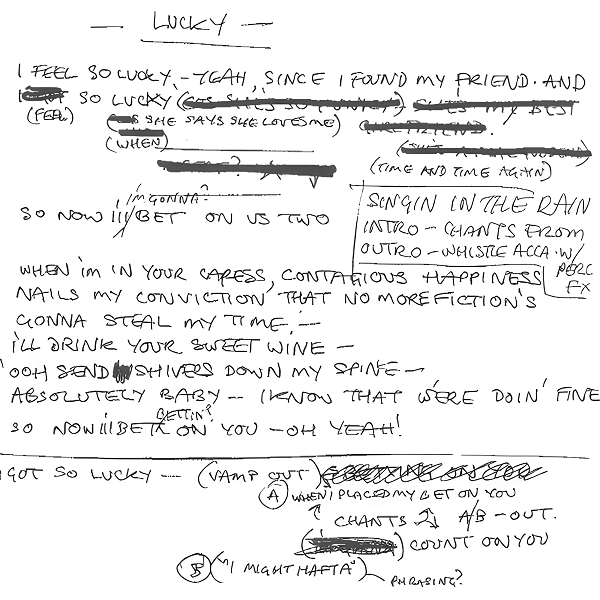 — LUCKY —
I FEEL SO LUCKY, – YEAH, SINCE I FOUND MY FRIEND. AND
SO LUCKY
(FEEL)
SHE SAYS SHE LOVES ME)
(WHEN)
(TIME AND TIME AGAIN)
I'M GONNA?
SO NOW I'LL BET ON US TWO
SINGIN IN THE RAIN
INTRO – CHANTS FROM
OUTRO – WHISTLE ACCA. W/
PERC
FX
WHEN I'M IN YOUR CARESS, CONTAGIOUS HAPPINESS
NAILS MY CONVICTION THAT NO MORE FICTION'S
GONNA STEAL MY TIME. —
I'LL DRINK YOUR SWEET WINE —
'OOH SEND SHIVERS DOWN MY SPINE —
ABSOLUTELY BABY — I KNOW THAT WE'RE DOIN' FINE
BETTIN'?
SO NOW I'LL BET ON YOU — OH YEAH!
I GOT SO LUCKY — (VAMP OUT)
(A) WHEN I PLACED MY BET ON YOU
CHANTS A/B – OUT.
COUNT ON YOU
(B) ("I MIGHT HAFTA")
PHRASING?